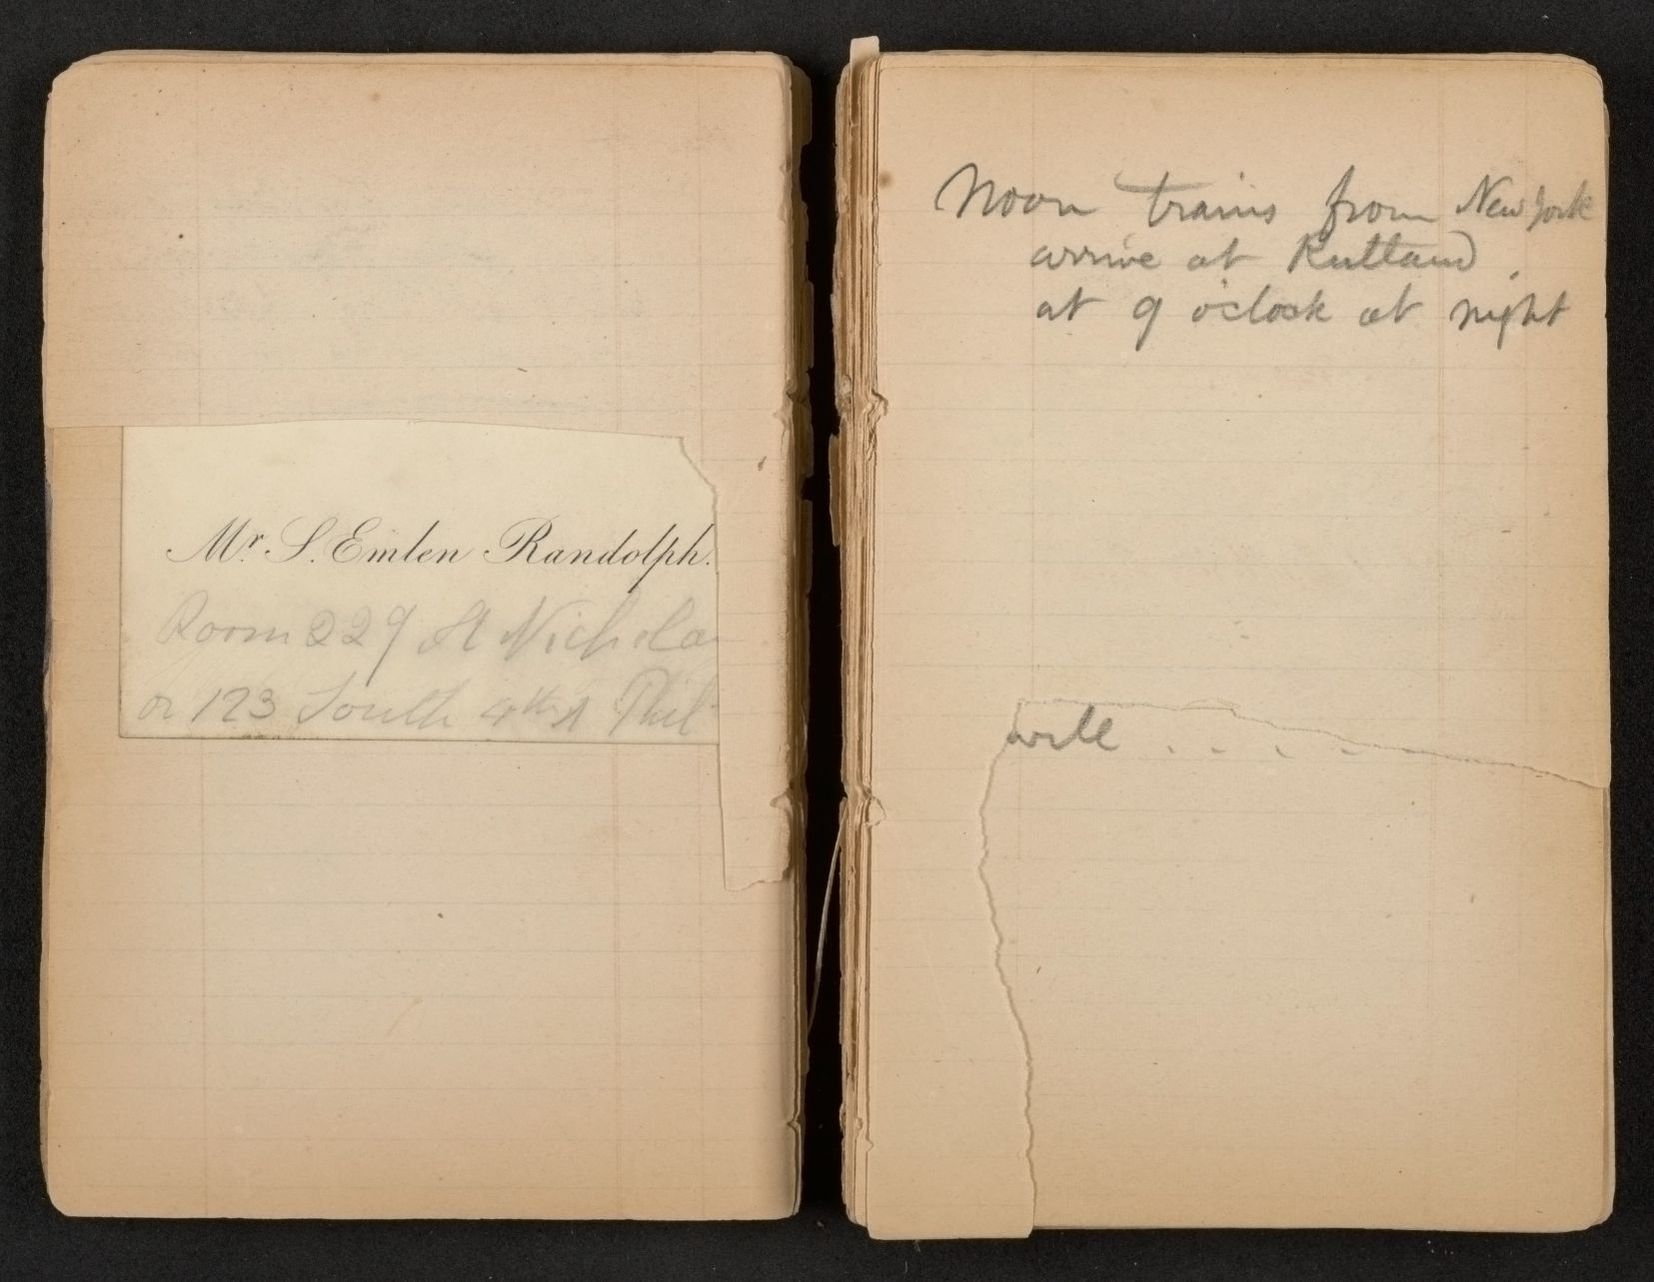 Mr. S. Emlen Randolph.
Room 229 St Nichola
or 123 South 4th St Phil
Noon trains from New York
arrive at Rutland,
at 9 o'clock at night
will . . . .